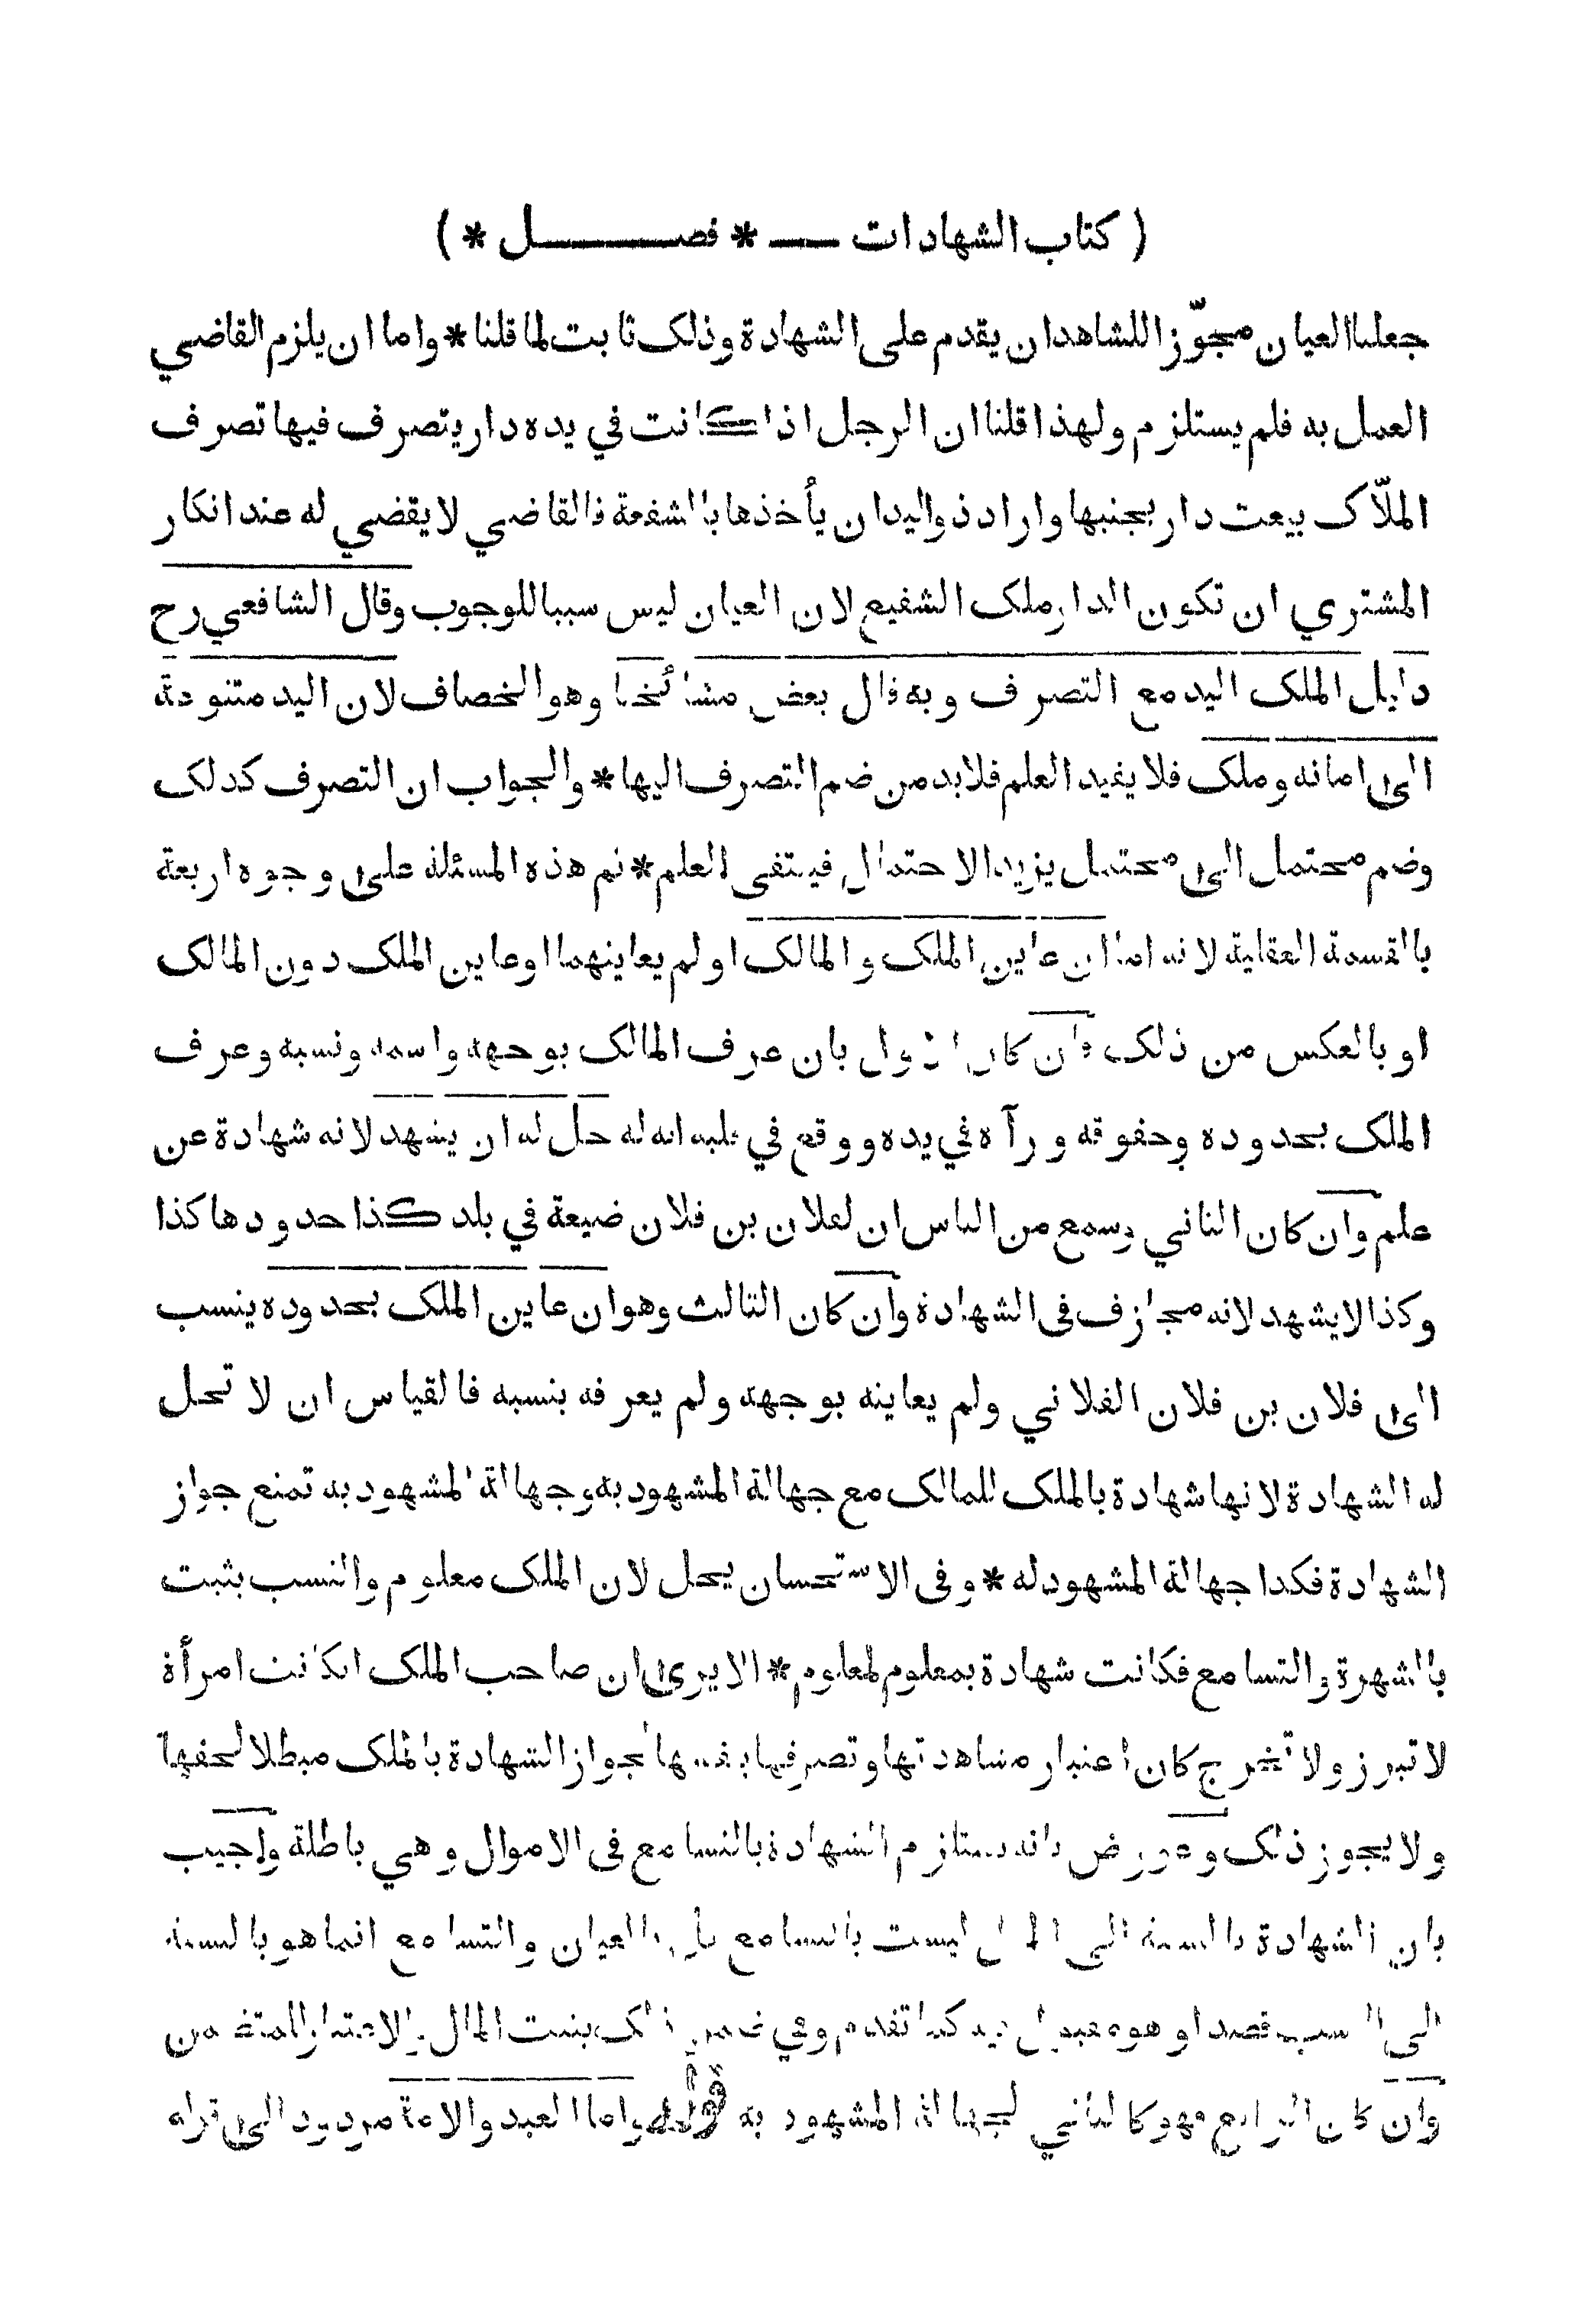 ( كتاب الشهادات — * فصـــــل * )
جعلنا العيان مجوّزا للشاهد ان يقدم على الشهادة وذلك ثابت لما قلنا * واما ان يلزم القاضي
العمل به فلم يستلزم ولهذا قلنا ان الرجل اذا كانت في يده دار يتصرف فيها تصرف
الملّاك بيعت دار بجنبها واراد ذو اليد ان يأخذها بالشفعة فالقاضي لا يقضي له عند انكار
المشتري ان تكون الدار ملك الشفيع لان العيان ليس سببا للوجوب وقال الشافعي رح
دليل الملك اليد مع التصرف وبه قال بعض مشائخنا وهو الخصاف لان اليد متنوعة
الى امانه وملك فلا يفيد العلم فلابد من ضم التصرف اليها * والجواب ان التصرف كذلك
وضم محتمل الى محتمل يزيد الاحتمال فينتفى العلم * ثم هذه المسئلة على وجوه اربعة
بالقسمة العقلية لانه اما ان عاين الملك والمالك او لم يعاينهما او عاين الملك دون المالك
او بالعكس من ذلك فان كان الاول بان عرف المالك بوجهه واسمه ونسبه وعرف
الملك بحدوده وحقوقه ورآه في يده ووقع في قلبه انه له حل له ان يشهد لانه شهادة عن
علم وان كان الثاني وسمع من الناس ان لفلان بن فلان ضيعة في بلد كذا حدودها كذا
وكذا لا يشهد لانه مجازف فى الشهادة وان كان الثالث وهو ان عاين الملك بحدوده ينسب
الى فلان بن فلان الفلاني ولم يعاينه بوجهه ولم يعرفه بنسبه فالقياس ان لا تحل
له الشهادة لانها شهادة بالملك للمالك مع جهالة المشهود به وجهالة المشهود به تمنع جواز
الشهادة فكذا جهالة المشهود له * وفى الاستحسان يحل لان الملك معلوم والنسب يثبت
بالشهرة والتسامع فكانت شهادة بمعلوم لمعلوم * الا يرى ان صاحب الملك ان كانت امرأة
لا تبرز ولا تخرج كان اعتبار مشاهدتها وتصرفها بنفسها لجواز الشهادة بالملك مبطلا لحقها
ولا يجوز ذلك وعورض بانه يستلزم الشهادة بالتسامع فى الاموال وهي باطلة واجيب
بان الشهادة بالنسبة الى المال ليست بالتسامع بل بالعيان والتسامع انما هو بالنسبة
الى النسب قصدا وهو مقبول فيه كما تقدم وفي ضمن ذلك يثبت المال والاعتبار للمتضمن
وان كان الرابع فهو كالثاني لجهالة المشهود به قوله واما العبد والامة مردود الى قوله